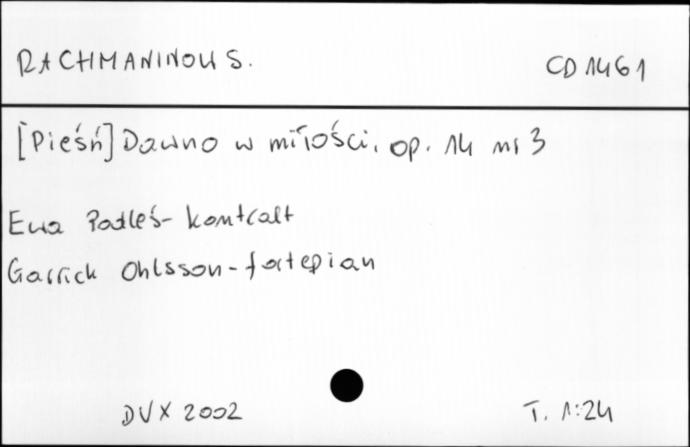 RACHMANINOW S. CD 1461
[Pieśń] Dawno w miłości, op. 14 nr 3
Ewa Podleś - kontralt
Garrick Ohlsson - fortepian
DUX 2002 T. 1:24